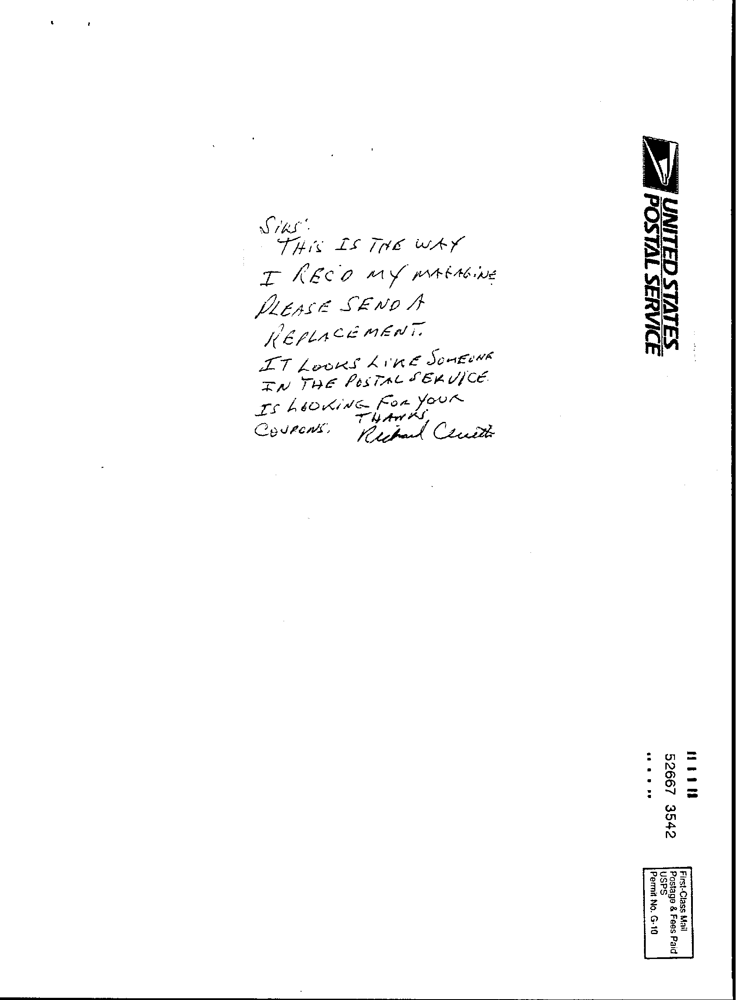 SIRS:
THIS IS THE WAY
I REC'D MY MAGAZINE
PLEASE SEND A
REPLACEMENT.
IT LOOKS LIKE SOMEONE
IN THE POSTAL SERVICE
IS LOOKING FOR YOUR
COUPONS. THANKS,
Richard
UNITED STATES
POSTAL SERVICE
52667 3542
First-Class Mail
Postage & Fees Paid
USPS
Permit No. G-10